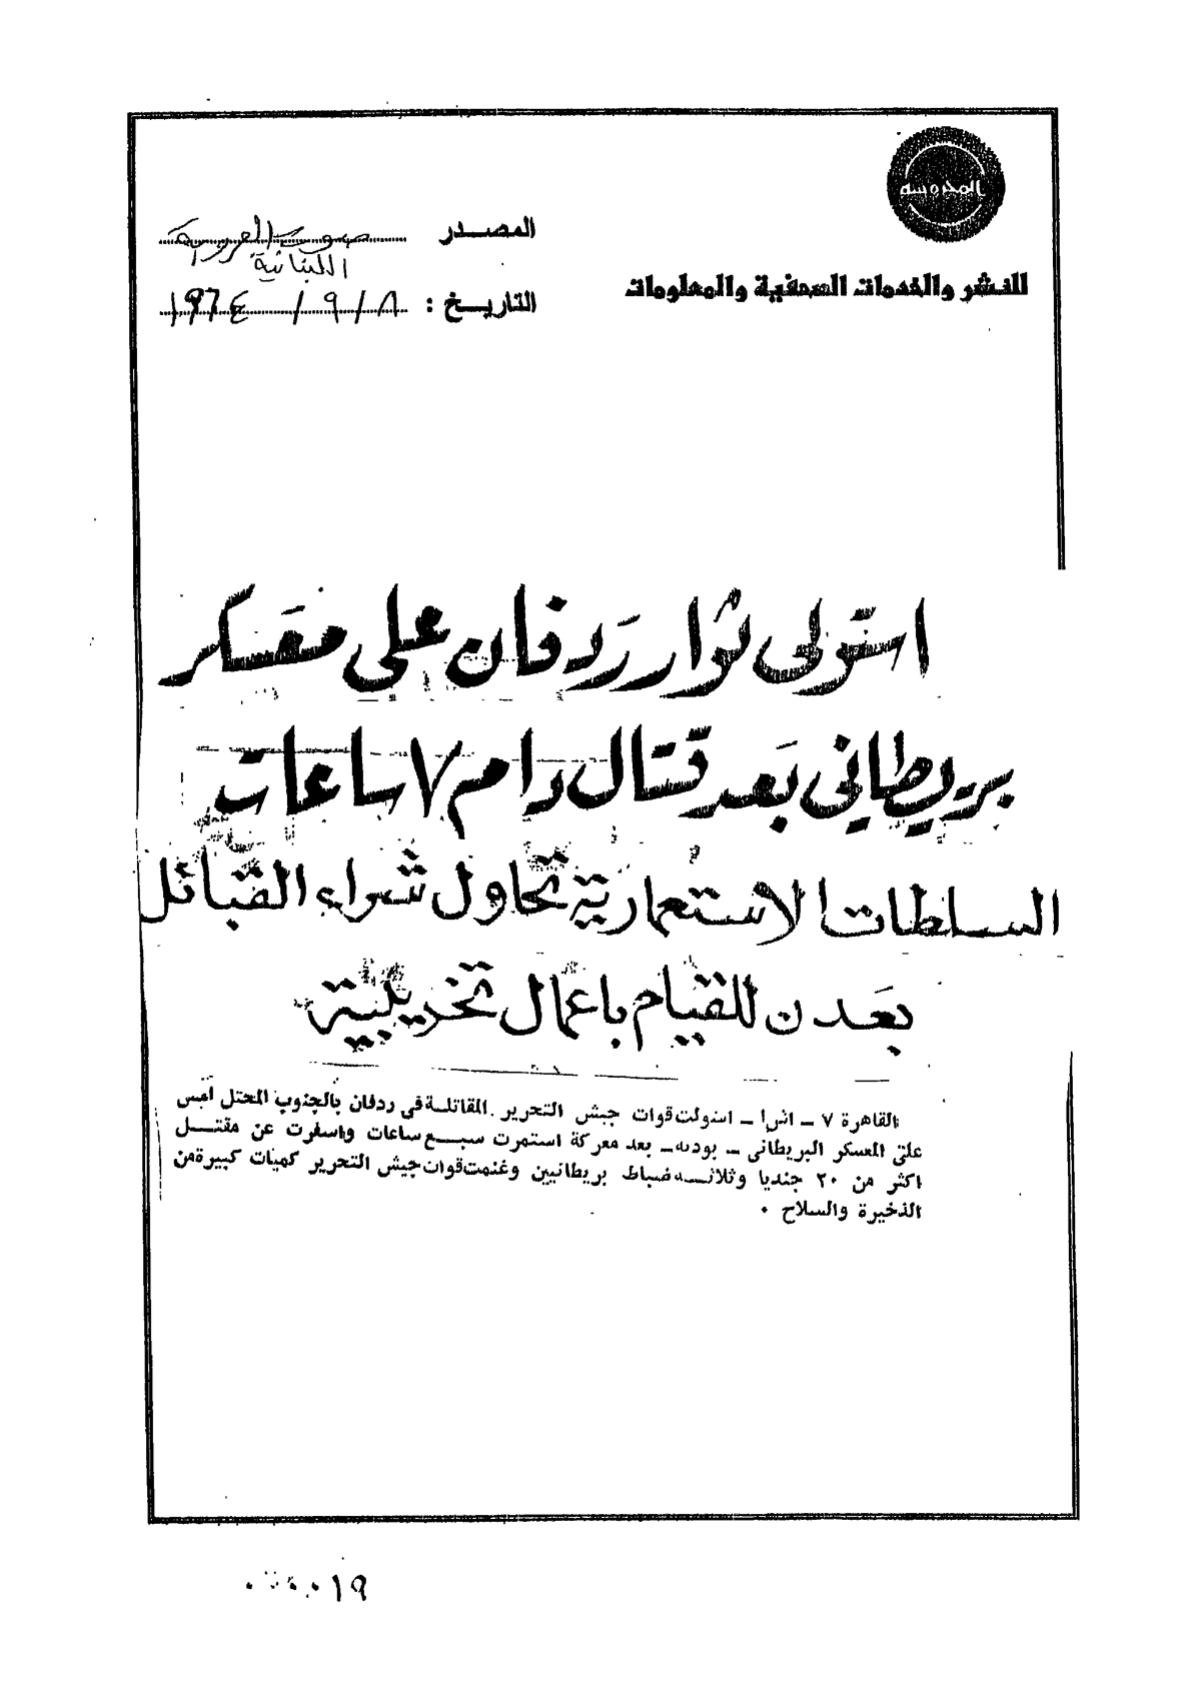 المحروسه
للنشر والخدمات الصحفية والمعلومات
المصدر صوت العروبة
اللبنانية
التاريخ : ٨ / ٩ / ١٩٦٤
استولى ثوار ردفان على معسكر
بريطاني بعد قتال دام ٧ ساعات
السلطات الاستعمارية تحاول شراء القبائل
بعدن للقيام باعمال تخريبية
القاهرة ٧ ـ انرا ـ استولت قوات جيش التحرير المقاتلة فى ردفان بالجنوب المحتل امس
على المعسكر البريطانى ـ بوديه ـ بعد معركة استمرت سبع ساعات واسفرت عن مقتل
اكثر من ٢٠ جنديا وثلاثه ضباط بريطانيين وغنمت قوات جيش التحرير كميات كبيرة من
الذخيرة والسلاح ٠
٠١٩